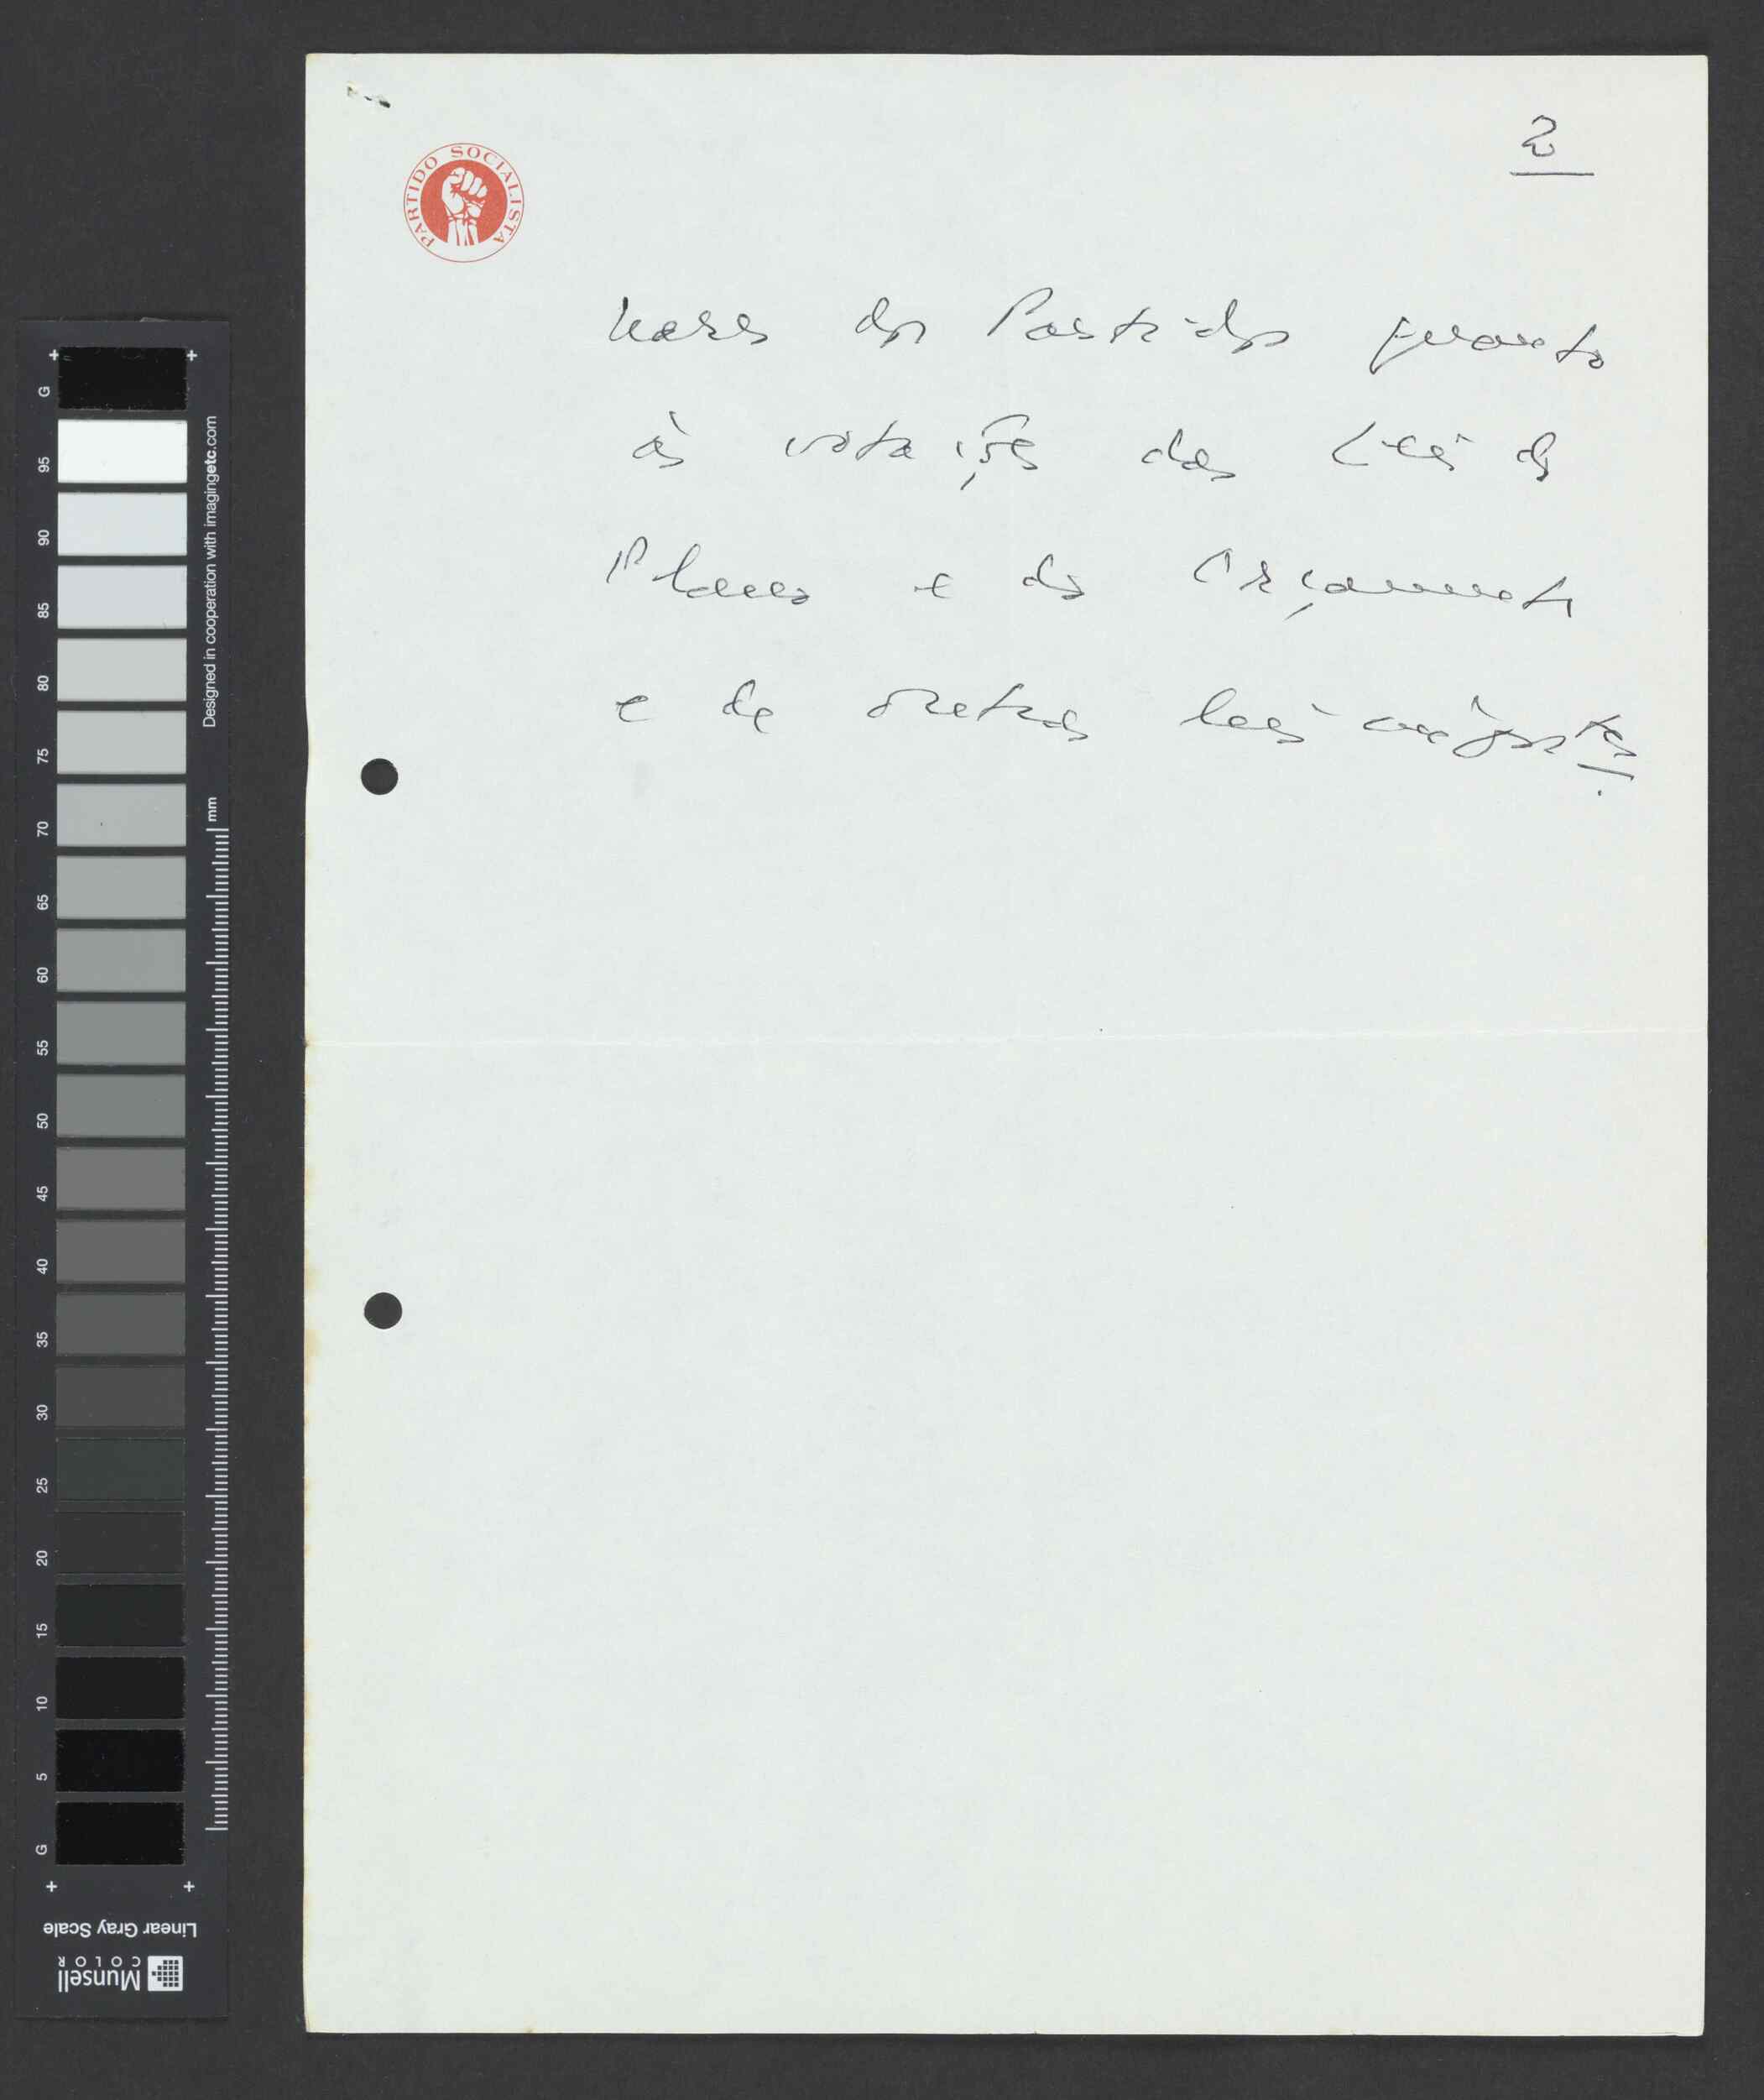 PARTIDO SOCIALISTA
2
dos Partidos quanto
às votações das Leis do
Plano e do Orçamento
e de outras leis importantes.
G
95
90
85
80
75
70
65
60
55
50
45
40
35
30
25
20
15
10
5
G
Designed in cooperation with imagingetc.com
mm
Linear Gray Scale
Munsell
COLOR